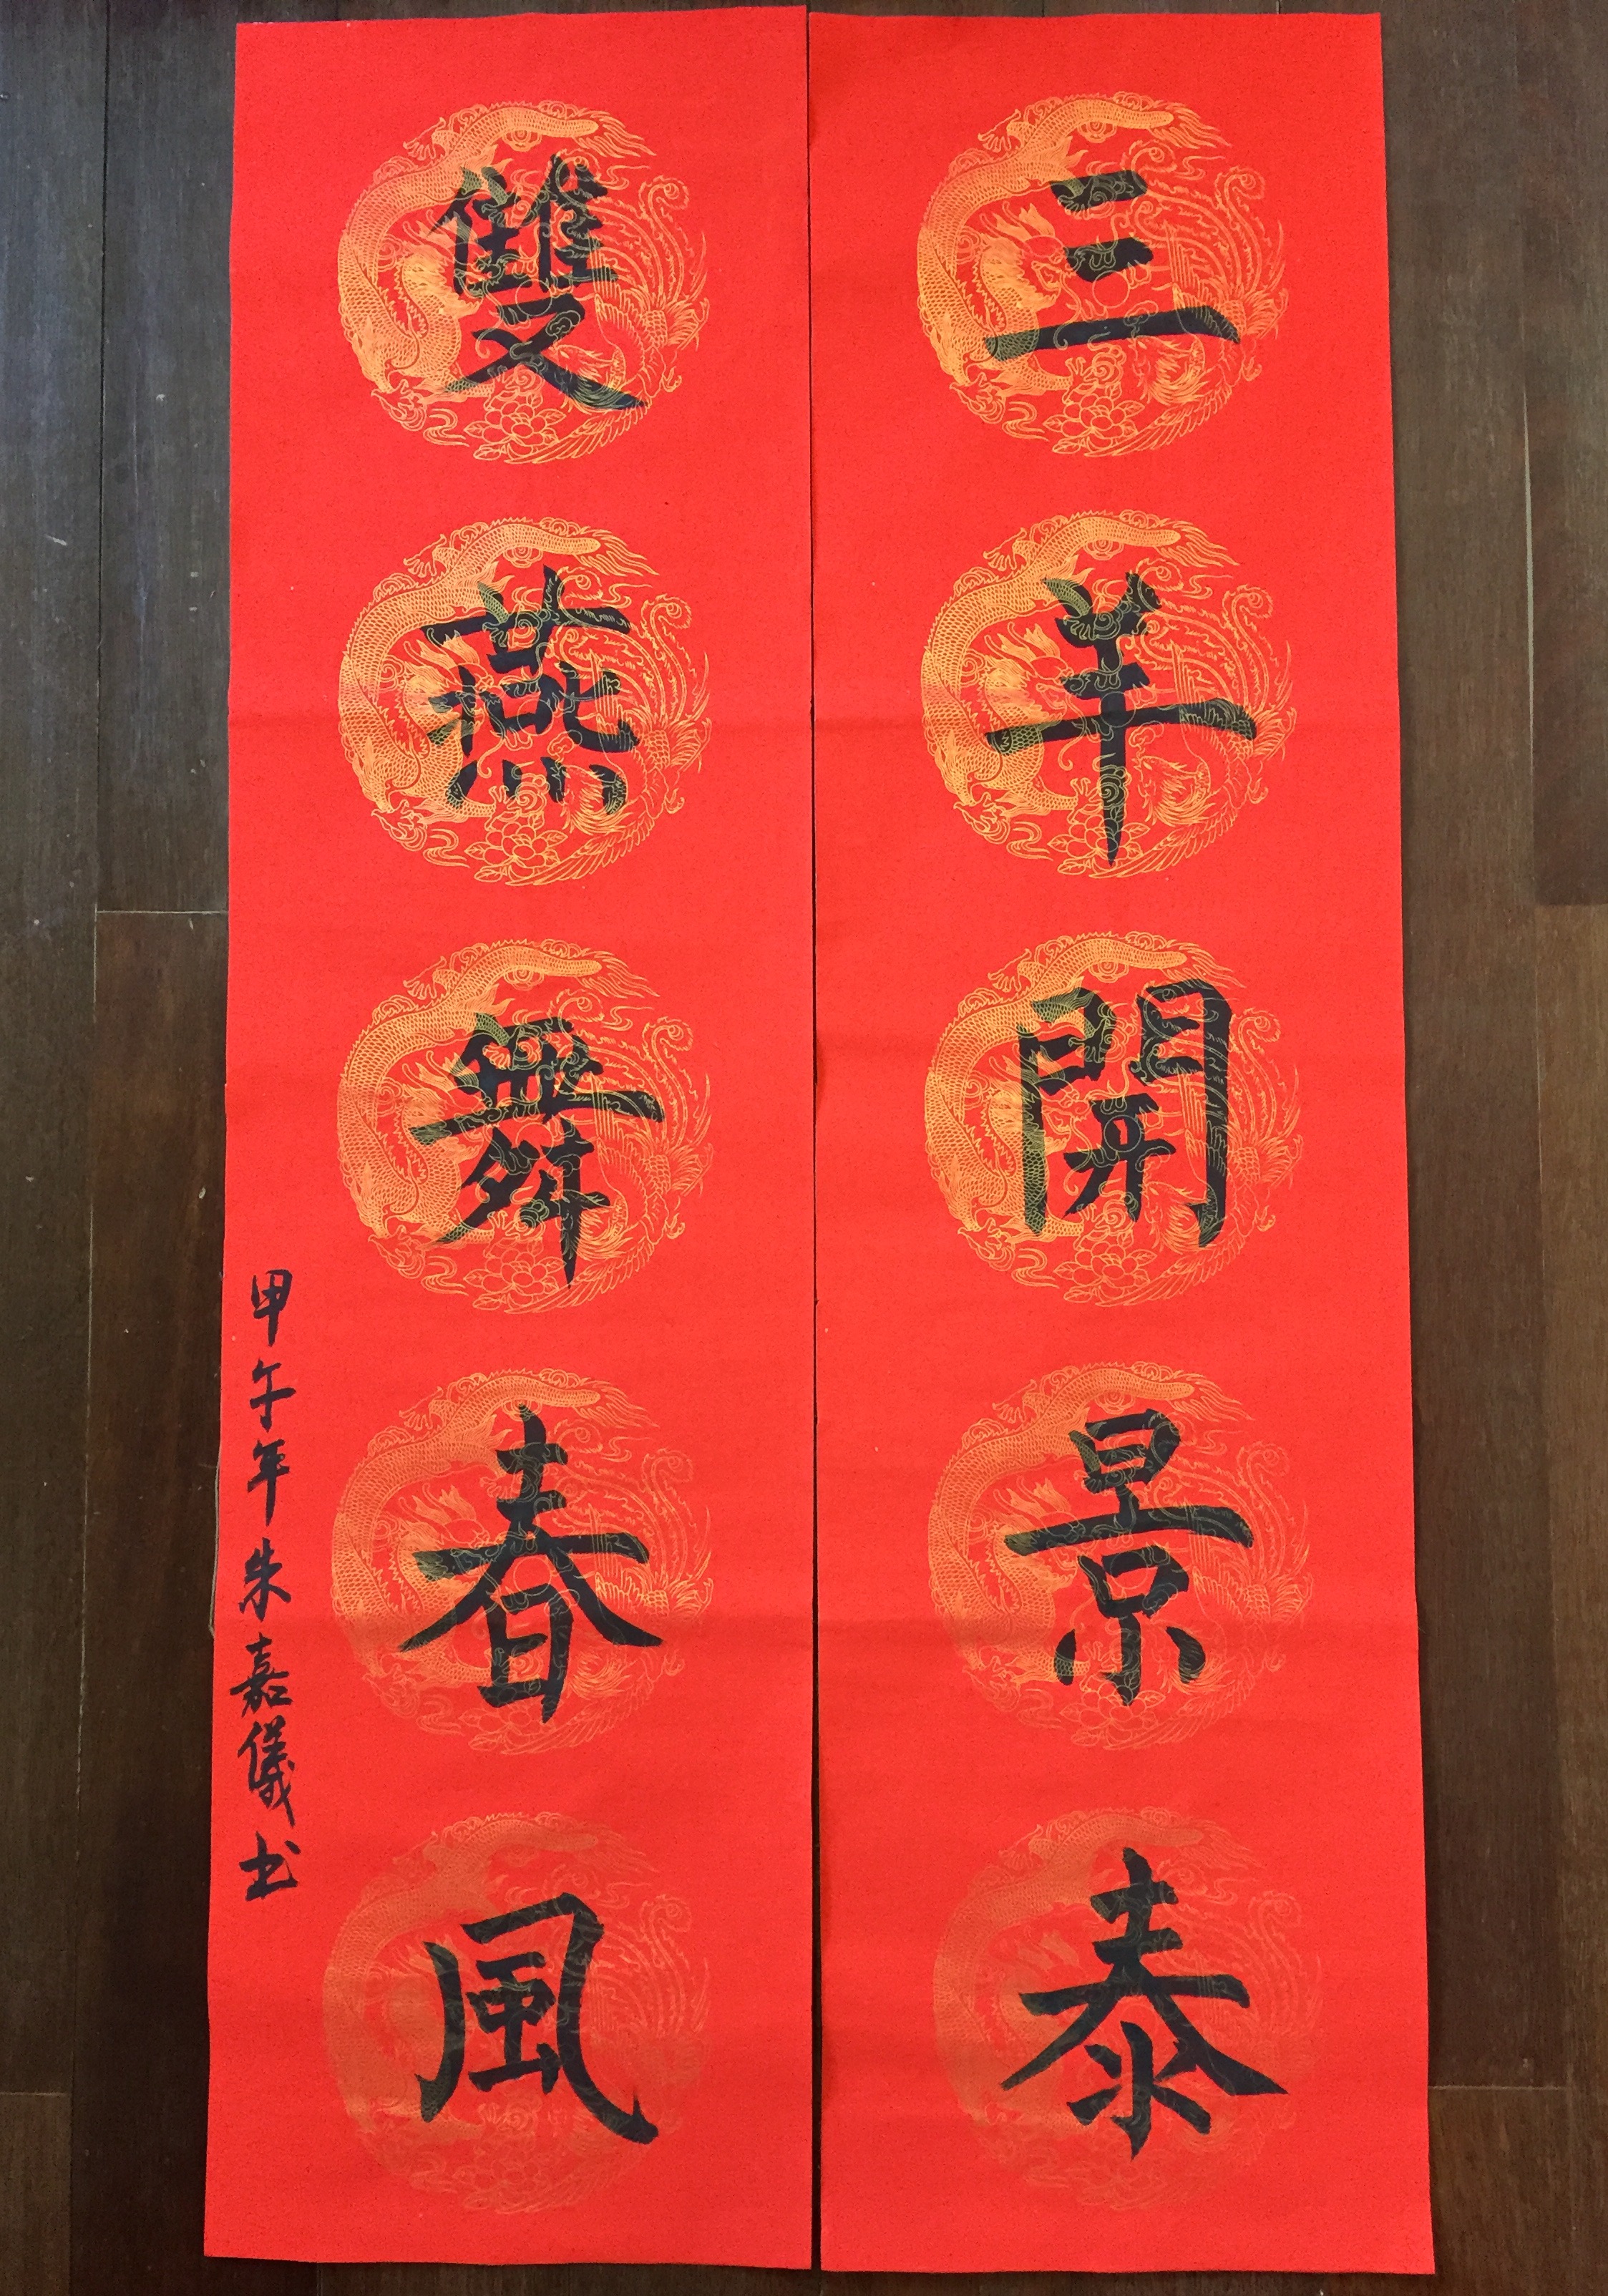 三羊開景泰
雙燕舞春風
甲午年朱嘉儀书